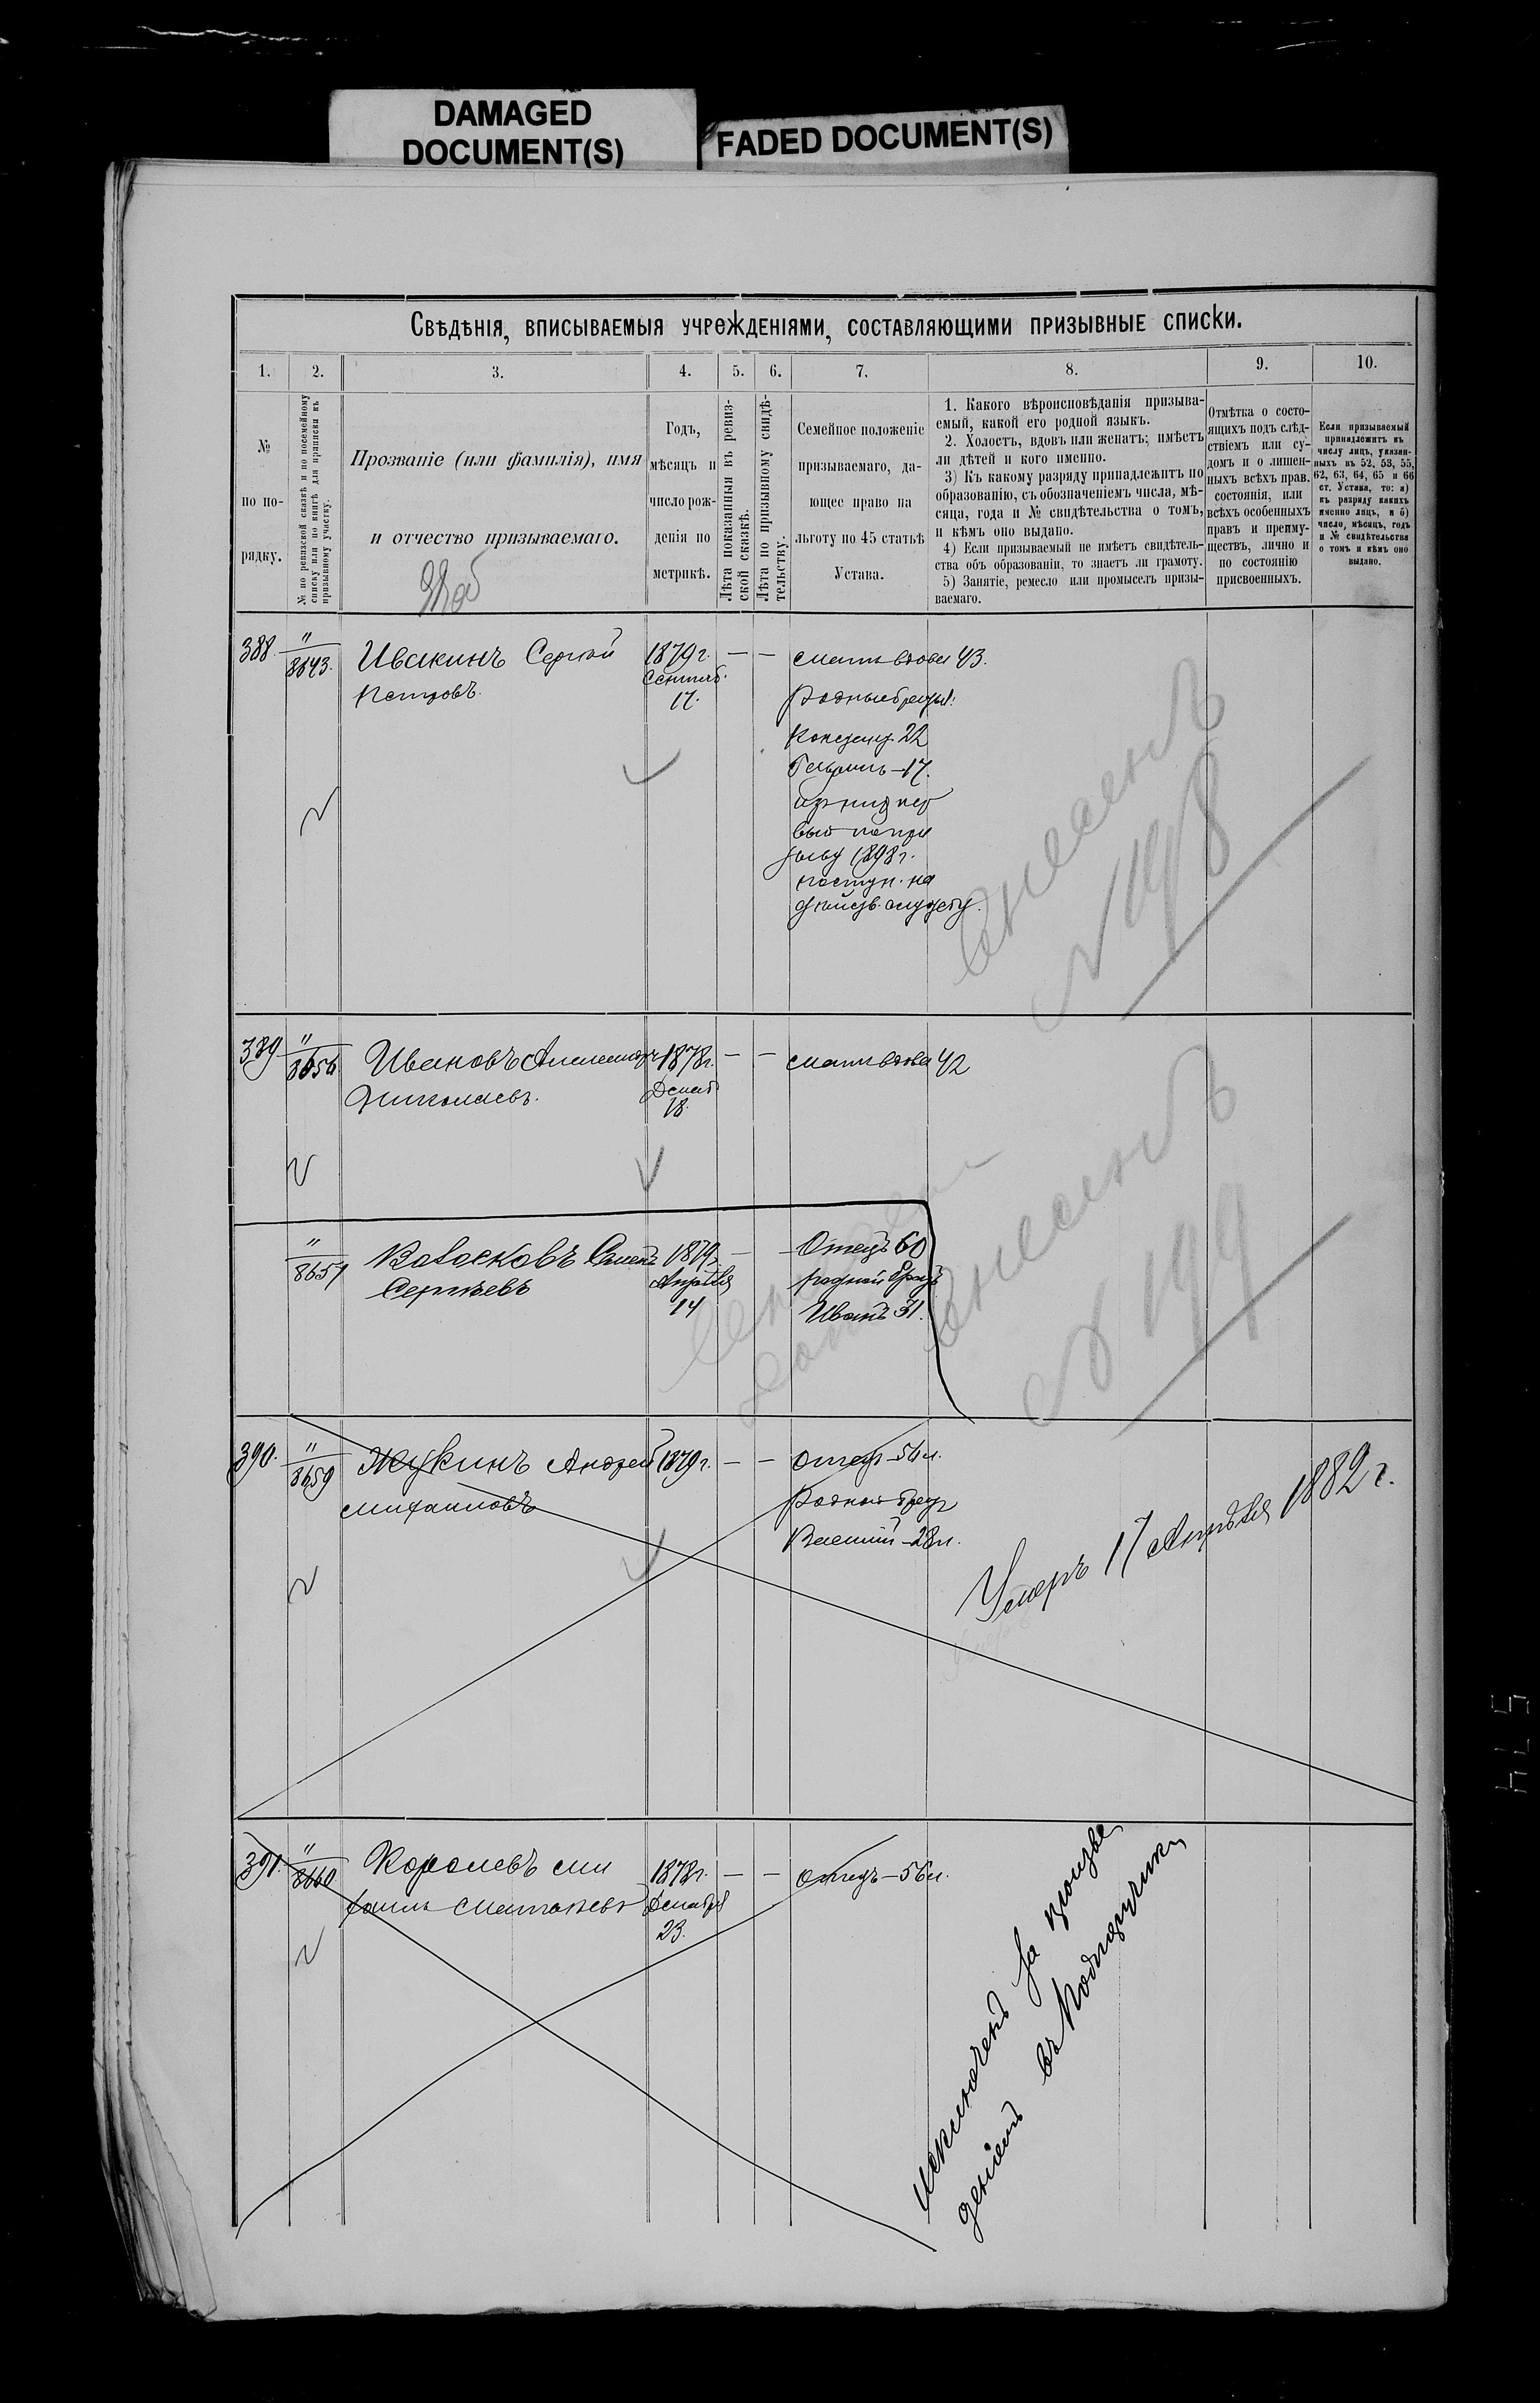 DAMAGED
DOCUMENT(S)
FADED DOCUMENT(S)
Свѣдѣнія, вписываемыя учрежденіями, составляющими призывные списки.
1.
2.
3.
4.
5.
6.
7.
8.
9.
10.
№
по по-
рядку.
№ по ревизской сказкѣ и по посемейному
списку или по книгѣ для приписки къ
призывному участку.
Прозваніе (или фамилія), имя
и отчество призываемаго.
Годъ,
мѣсяцъ и
число рож-
денія по
метрикѣ.
Лѣта показанныя въ ревиз-
ской сказкѣ.
Лѣта по призывному свидѣ-
тельству.
Семейное положеніе
призываемаго, да-
ющее право на
льготу по 45 статьѣ
Устава.
1. Какого вѣроисповѣданія призыва-
емый, какой его родной языкъ.
2. Холостъ, вдовъ или женатъ; имѣетъ
ли дѣтей и кого именно.
3) Къ какому разряду принадлежитъ по
образованію, съ обозначеніемъ числа, мѣ-
сяца, года и № свидѣтельства о томъ,
и кѣмъ оно выдано.
4) Если призываемый не имѣетъ свидѣтель-
ства объ образованіи, то знаетъ ли грамоту.
5) Занятіе, ремесло или промыселъ призы-
ваемаго.
Отмѣтка о состо-
ящихъ подъ слѣд-
ствіемъ или су-
домъ и о лишен-
ныхъ всѣхъ прав.
состоянія, или
всѣхъ особенныхъ
правъ и преиму-
ществъ, лично и
по состоянію
присвоенныхъ.
Если призываемый
принадлежитъ къ
числу лицъ, указан-
ныхъ въ 52, 53, 55,
62, 63, 64, 65 и 66
ст. Устава, то: а)
къ разряду какихъ
именно лицъ, и б)
число, мѣсяцъ, годъ
и № свидѣтельства
о томъ и кѣмъ оно
выдано.
388. " 8643. Ивакинъ Сергѣй 1879 г. — — мать вдова 43.
Петровъ. Сентяб. родные братья:
17.
22
Гавріилъ – 17.
изъ них пер
вый по при
зыву 1898 г.
поступ. на
дѣйств. службу.
внесенъ
№ 198
389 " Ивановъ Александръ 1878 г. — — мать вдова 42
Николаевъ. Декаб
18.
внесенъ
№ 199
" 8657 Волосковъ 1879 г. — Отецъ 60
Сергѣевъ Апрѣля родной братъ
14 Иванъ 31.
390. " 8659 Жукинъ Андрей 1879 г. — — отец – 54 л.
Михаиловъ родной брат
Василій – 28 л.
Умеръ 17 Апрѣля 1882 г.
391. " 8660 Королевъ Ми 1878 г. — — отецъ – 56 л.
хаилъ Матвѣевъ Декабря
23.
исключенъ за произве
деніемъ въ Подпоручики
574